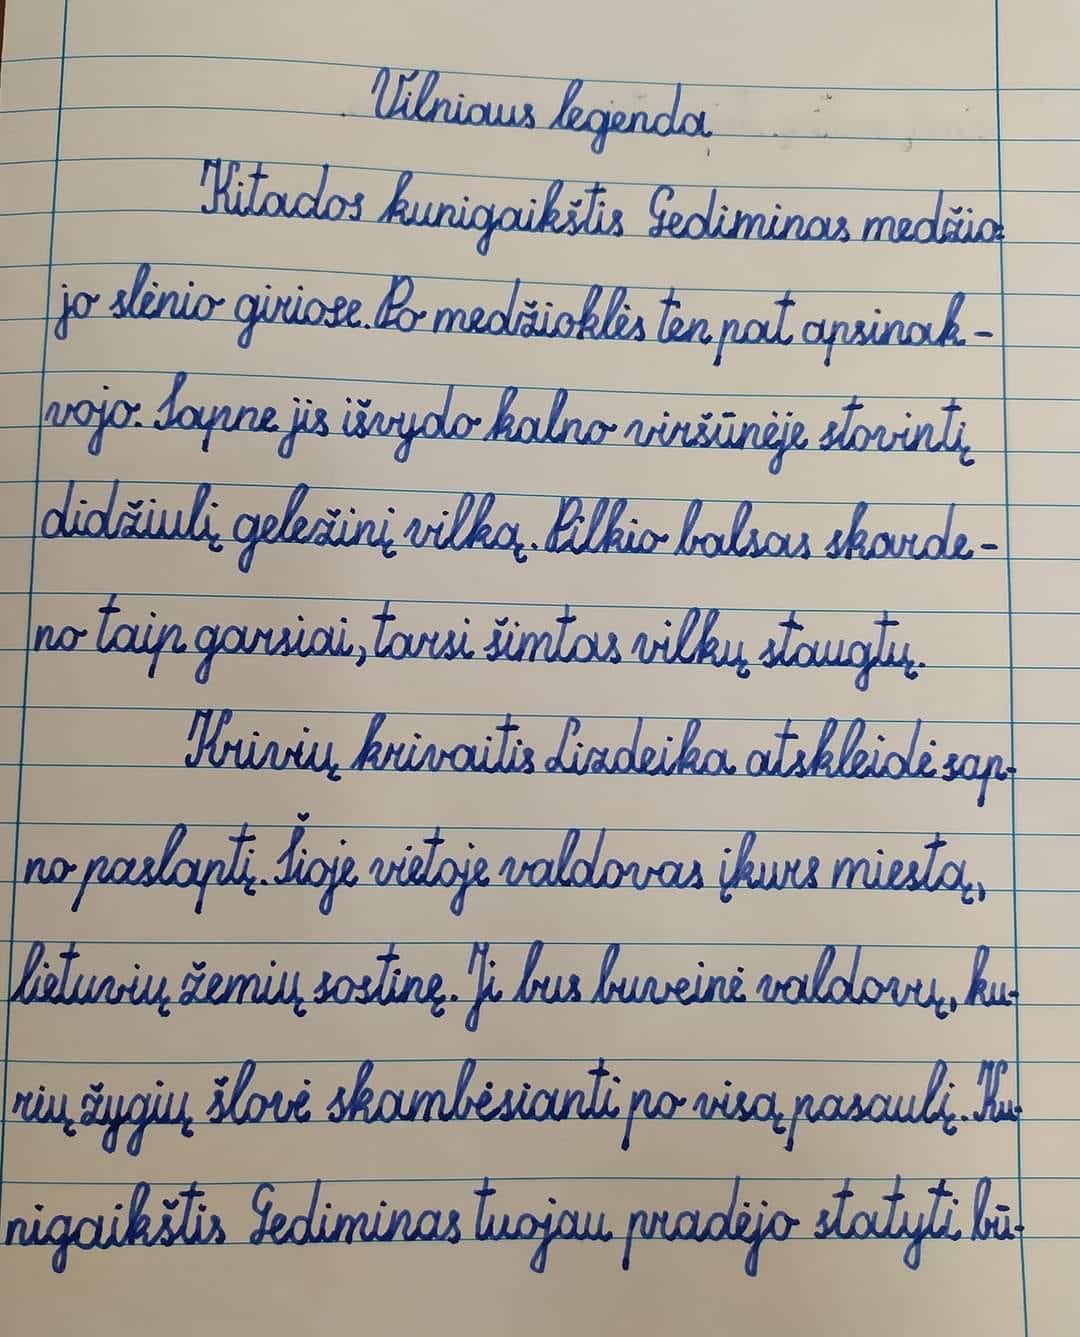 Vilniaus legenda
Kitados kunigaikštis Gediminas medžio-
jo slėnio giriose. Po medžioklės ten pat apsinak-
vojo. Sapne jis išvydo kalno viršūnėje stovintį
didžiulį geležinį vilką. Pilkio balsas skarde-
no taip garsiai, tarsi šimtas vilkų staugtų.
Krivių krivaitis Lizdeika atskleidė sap-
no paslaptį. Šioje vietoje valdovas įkurs miestą,
lietuvių žemių sostinę. Ji bus buveinė valdovų, ku-
rių žygių šlovė skambėsianti po visą pasaulį. Ku-
nigaikštis Gediminas tuojau pradėjo statyti bū-